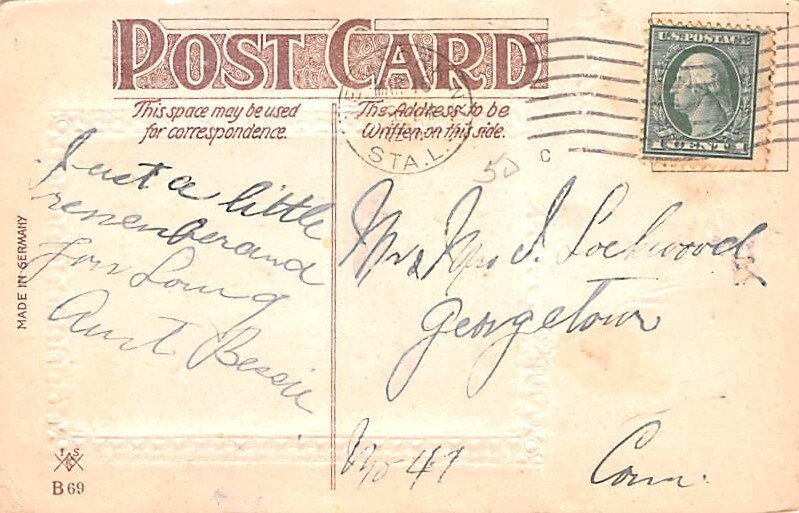 POST CARD
This space may be used
for correspondence.
The Address to be
Written on this side.
STA. L.
U.S. POSTAGE
1 CENT 1
50
C
Just a little
rememberand
from Loving
Aunt Bessie
Mr & Mrs I. Lockwood
Georgetown
No 47
Conn.
MADE IN GERMANY
T S
B 69